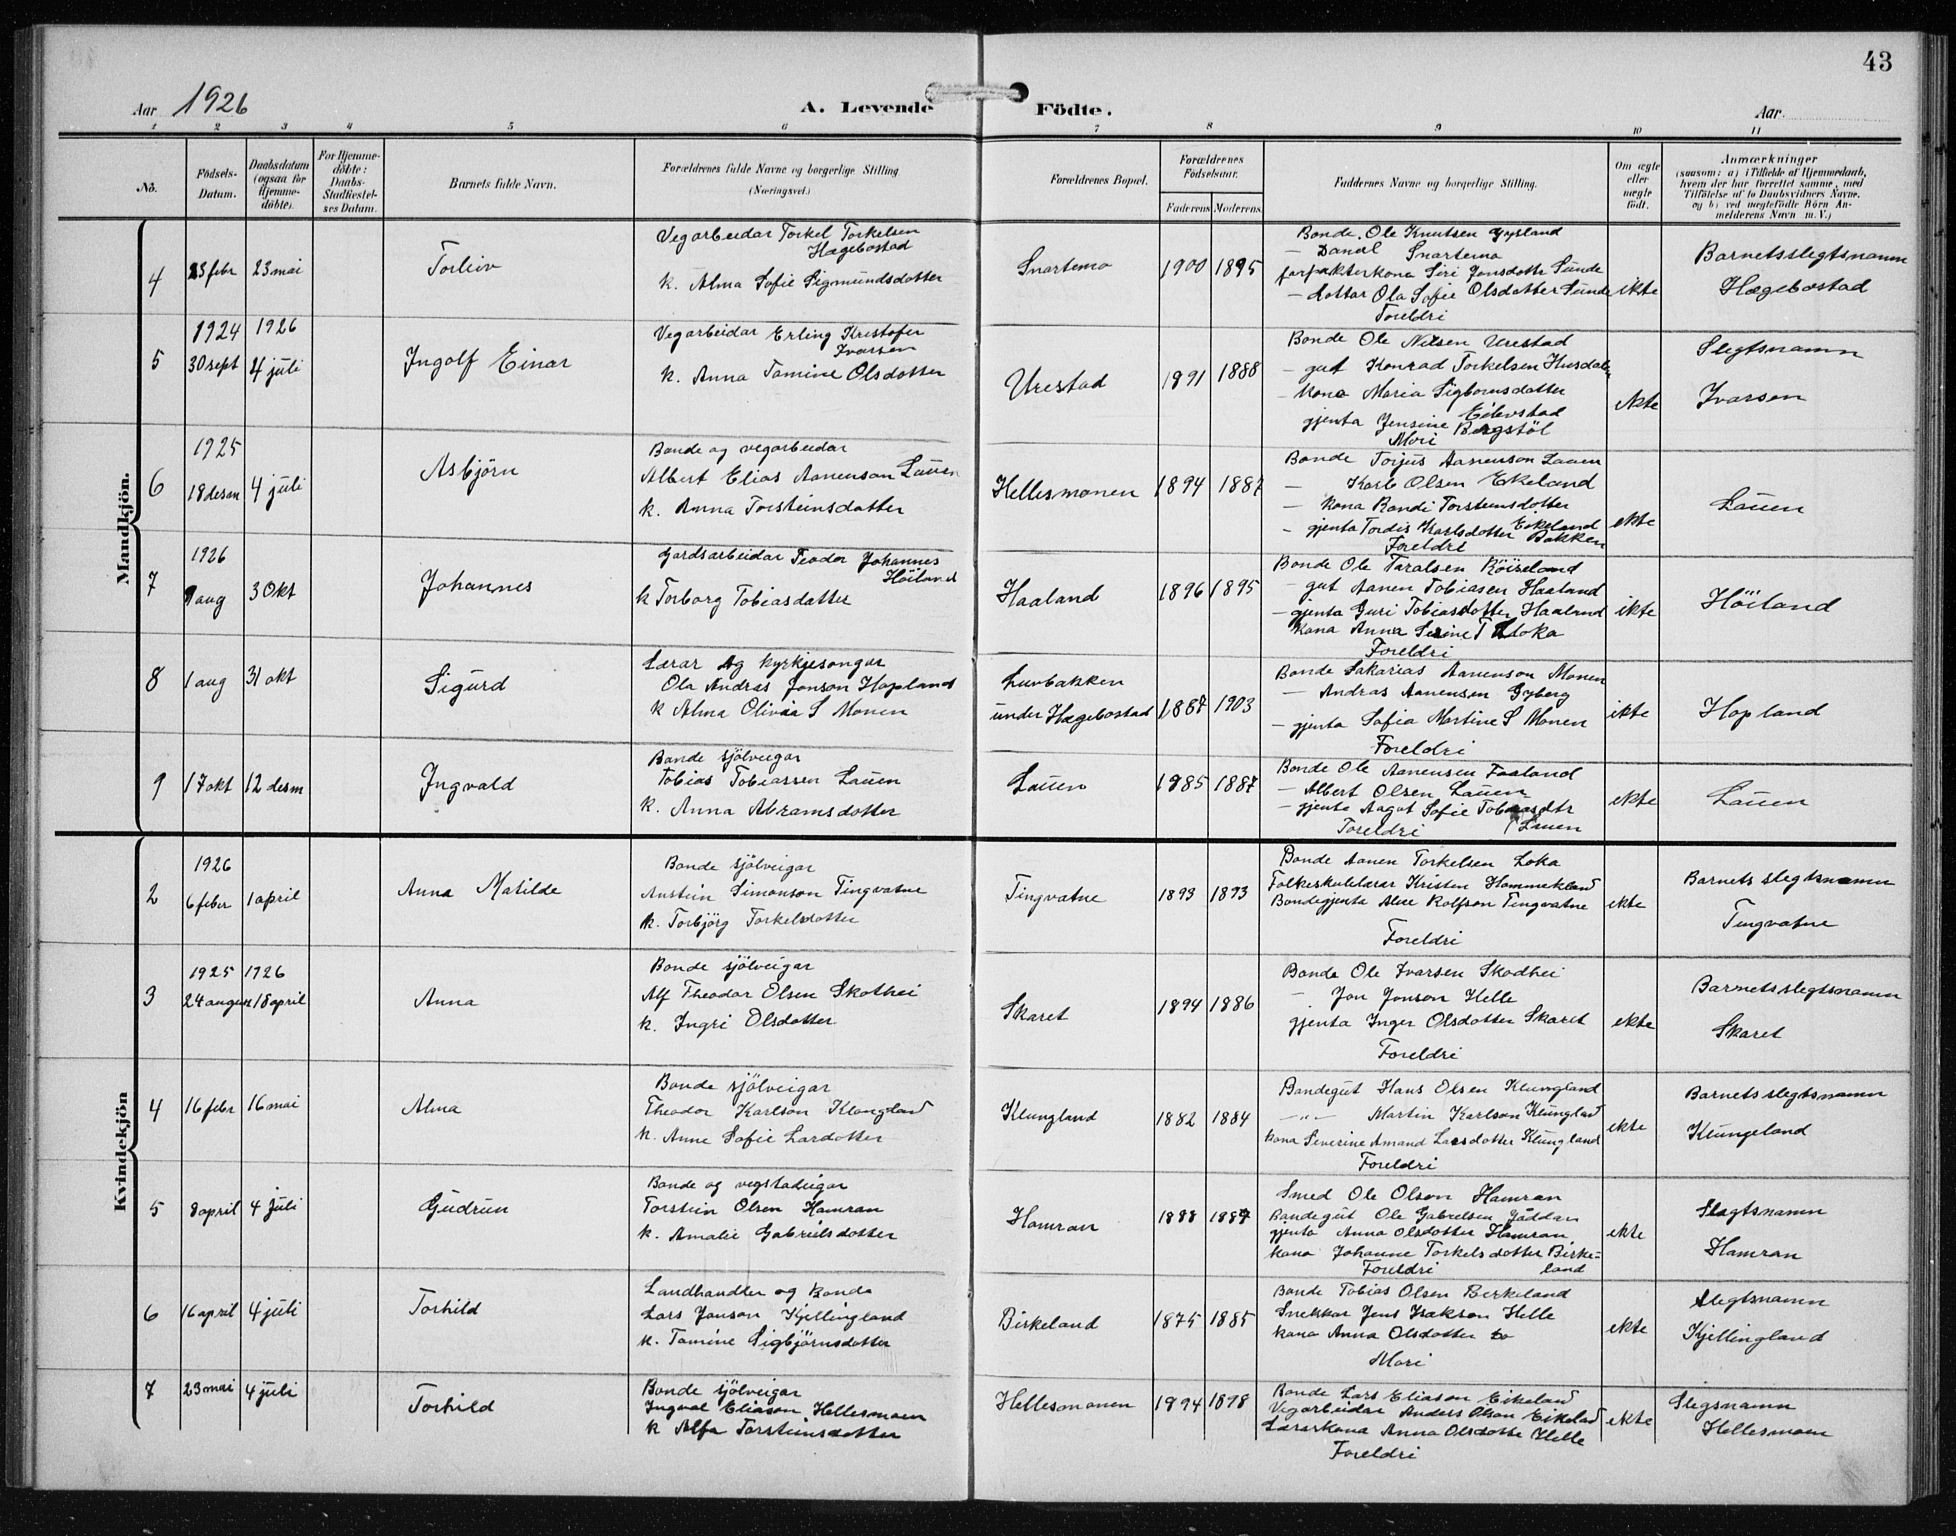 43
Aar 1926
A. Levende Födte.
Aar
1 2 3 4 5 6 7 8 9 10 11
No.
Födsels-
Datum.
Daabsdatum
(ogsaa for
Hjemme-
döbte).
For Hjemme-
döbte:
Daabs-
Stadfæstel-
ses Datum.
Barnets fulde Navn.
Forældrenes fulde Navne og borgerlige Stilling
(Næringsvei.)
Forældrenes Bopæl.
Forældrenes
Födselsaar.
Faderens Moderens
Faddernes Navne og borgerlige Stilling.
Om ægte
eller
uægte
födt.
Anmærkninger
(saasom: a) i Tilfælde af Hjemmedaab,
hvem der har forrettet samme, med
Tilföielse af to Daabsvidners Navne.
og b) ved uægtefödte Börn An-
melderens Navn m. V.)
Mandkjön.
4
23 febr
23 mai
Torleiv
Vegarbeidar Torkel Torkelsen
Hægebostad
k. Alma Sofie Sigmundsdotter
Snartemo
1900
1895
Bonde Ole Knutsen
— Danel Snartemo
Siri Jonsdotter Sunde
— dottar Ola Sofie Olsdotter Sunde
Foreldri
ikte
Barnetsslegtsnamn
Hægebostad
5
1924
30 sept
1926
4 juli
Ingolf Einar
Vegarbeidar Erling Kristofer
Ivarsen
k. Anna Tomine Olsdotter
Urestad
1891
1888
Bonde Ole Nilsen Urestad
— gut Konrad Torkelsen Husdalen
— kone Maria Sigbornsdotter
Eilevstad
gjenta Jensine Bergstöl
Mori
ekte
Slegtsnamn
Ivarsen
6
1925
18 desem
4 juli
Asbjörn
Bonde og vegarbeidar
Albert Elias Aanenson Lauen
k. Anna Torsteinsdotter
Hellesmonen
1894
1887
Bonde Torjus Aanenson Lauen
— Karl Olsen Ekeland
— kona Bondi Torsteinsdotter
— gjenta Tordis Karlsdotter Eikeland
Bakken
Foreldri
ekte
Lauen
7
1926
9 aug
3 Okt
Johannes
Gardsarbeidar Teodor Johannes
Höiland
k Torborg Tobiasdatter
Haaland
1896
1895
Bonde Ole Taralsen Röiseland
— gut Aanen Tobiasen Haaland
— gjenta Guri Tobiasdotter Haaland
kona Anna Serine T Loka
Foreldri
ikte
Höiland
8
1 aug
31 okt
Sigurd
Lærar og kyrkjesongar
Ola Andras Jonson Hopland
k Alma Olivia S Monen
Luvbakken
under Hægebostad
1887
1903
Bonde Sakarias Aanenson Monen
— Andras Aanensen Gyberg
— gjenta Sofia Martine S Monen
Foreldri
ikte
Hopland
9
17 okt
12 desm
Ingvald
Bonde sjölveigar
Tobias Tobiassen Lauen
k. Anna Abramsdotter
Lauen
1885
1887
Bonde Ole Aanensen Faaland
— Albert Olsen Lauen
— gjenta Aagot Sofie Tobiasdtr
Foreldri (Lauen
ekte
Lauen
Kvindekjön
2
1926
6 feber
1 april
Anna Matilde
Bonde sjölveigar
Austein Simonson Tingvatne
k. Torbjörg Torkelsdotter
Tingvatne
1893
1893
Bonde Aanen Torkelsen Loka
Folkeskulelærar Kristen Hommekland
Bondegjenta Alue Rolfson Tingvatne
Foreldri
ekte
Barnets slegtsnamn
Tingvatne
3
1925
24 august
1926
18 april
Anna
Bonde sjölveigar
Alf Theodor Olsen Skothei
k. Ingri Olsdotter
Skaret
1894
1886
Bonde Ole Ivarsen Skodhei
— Jon Jonson Helle
gjenta Inger Olsdotter Skaret
Foreldri
ekte
Barnetsslegtsnamn
Skaret
4
16 febr
16 mai
Alma
Bonde sjölveigar
Theodor Karlson Klungland
k. Anne Sofie Larsdotter
Klungland
1882
1884
Bondegut Hans Olsen Klungland
—"— Martin Karlson Klungland
kona Severine Amand Larsdotter Klungland
Foreldri
ekte
Barnetsslegtsnamn
Klungeland
5
8 april
4 juli
Gudrun
Bonde og
Torstein Olsen Hamran
k. Amalie Gabrielsdotter
Hamran
1888
1887
Smed Ole Olson Hamran
Bondegut Ole Gabrielsen
gjenta Anna Olsdotter Hamran
kona Johanne Torkelsdotter Birke=
Foreldri land
ekte
Slegtsnamn
Hamran
6
16 april
4 juli
Torhild
Landhandler og bonde
Lars Jonson Kjellingland
k. Tomine Sigbjörnsdotter
Birkeland
1875
1885
Bonde Tobias Olsen Birkeland
Snekkar Jens Isakson Helle
kona Anna Olsdotter to
Mori
ekte
Slegtsnamn
Kjellingland
7
23 mai
4 juli
Torhild
Bonde sjölveigar
Ingval Eliason Hellesmoen
k Alfa Torsteinsdotter
Hellesmonen
1894
1898
Bonde Lars Eliason Eikeland
Vegarbeidar Anders Olson Eikeland
Lærarkona Anna Olsdotter Helle
Foreldri
ekte
Slegsnamn
Hellesmoen